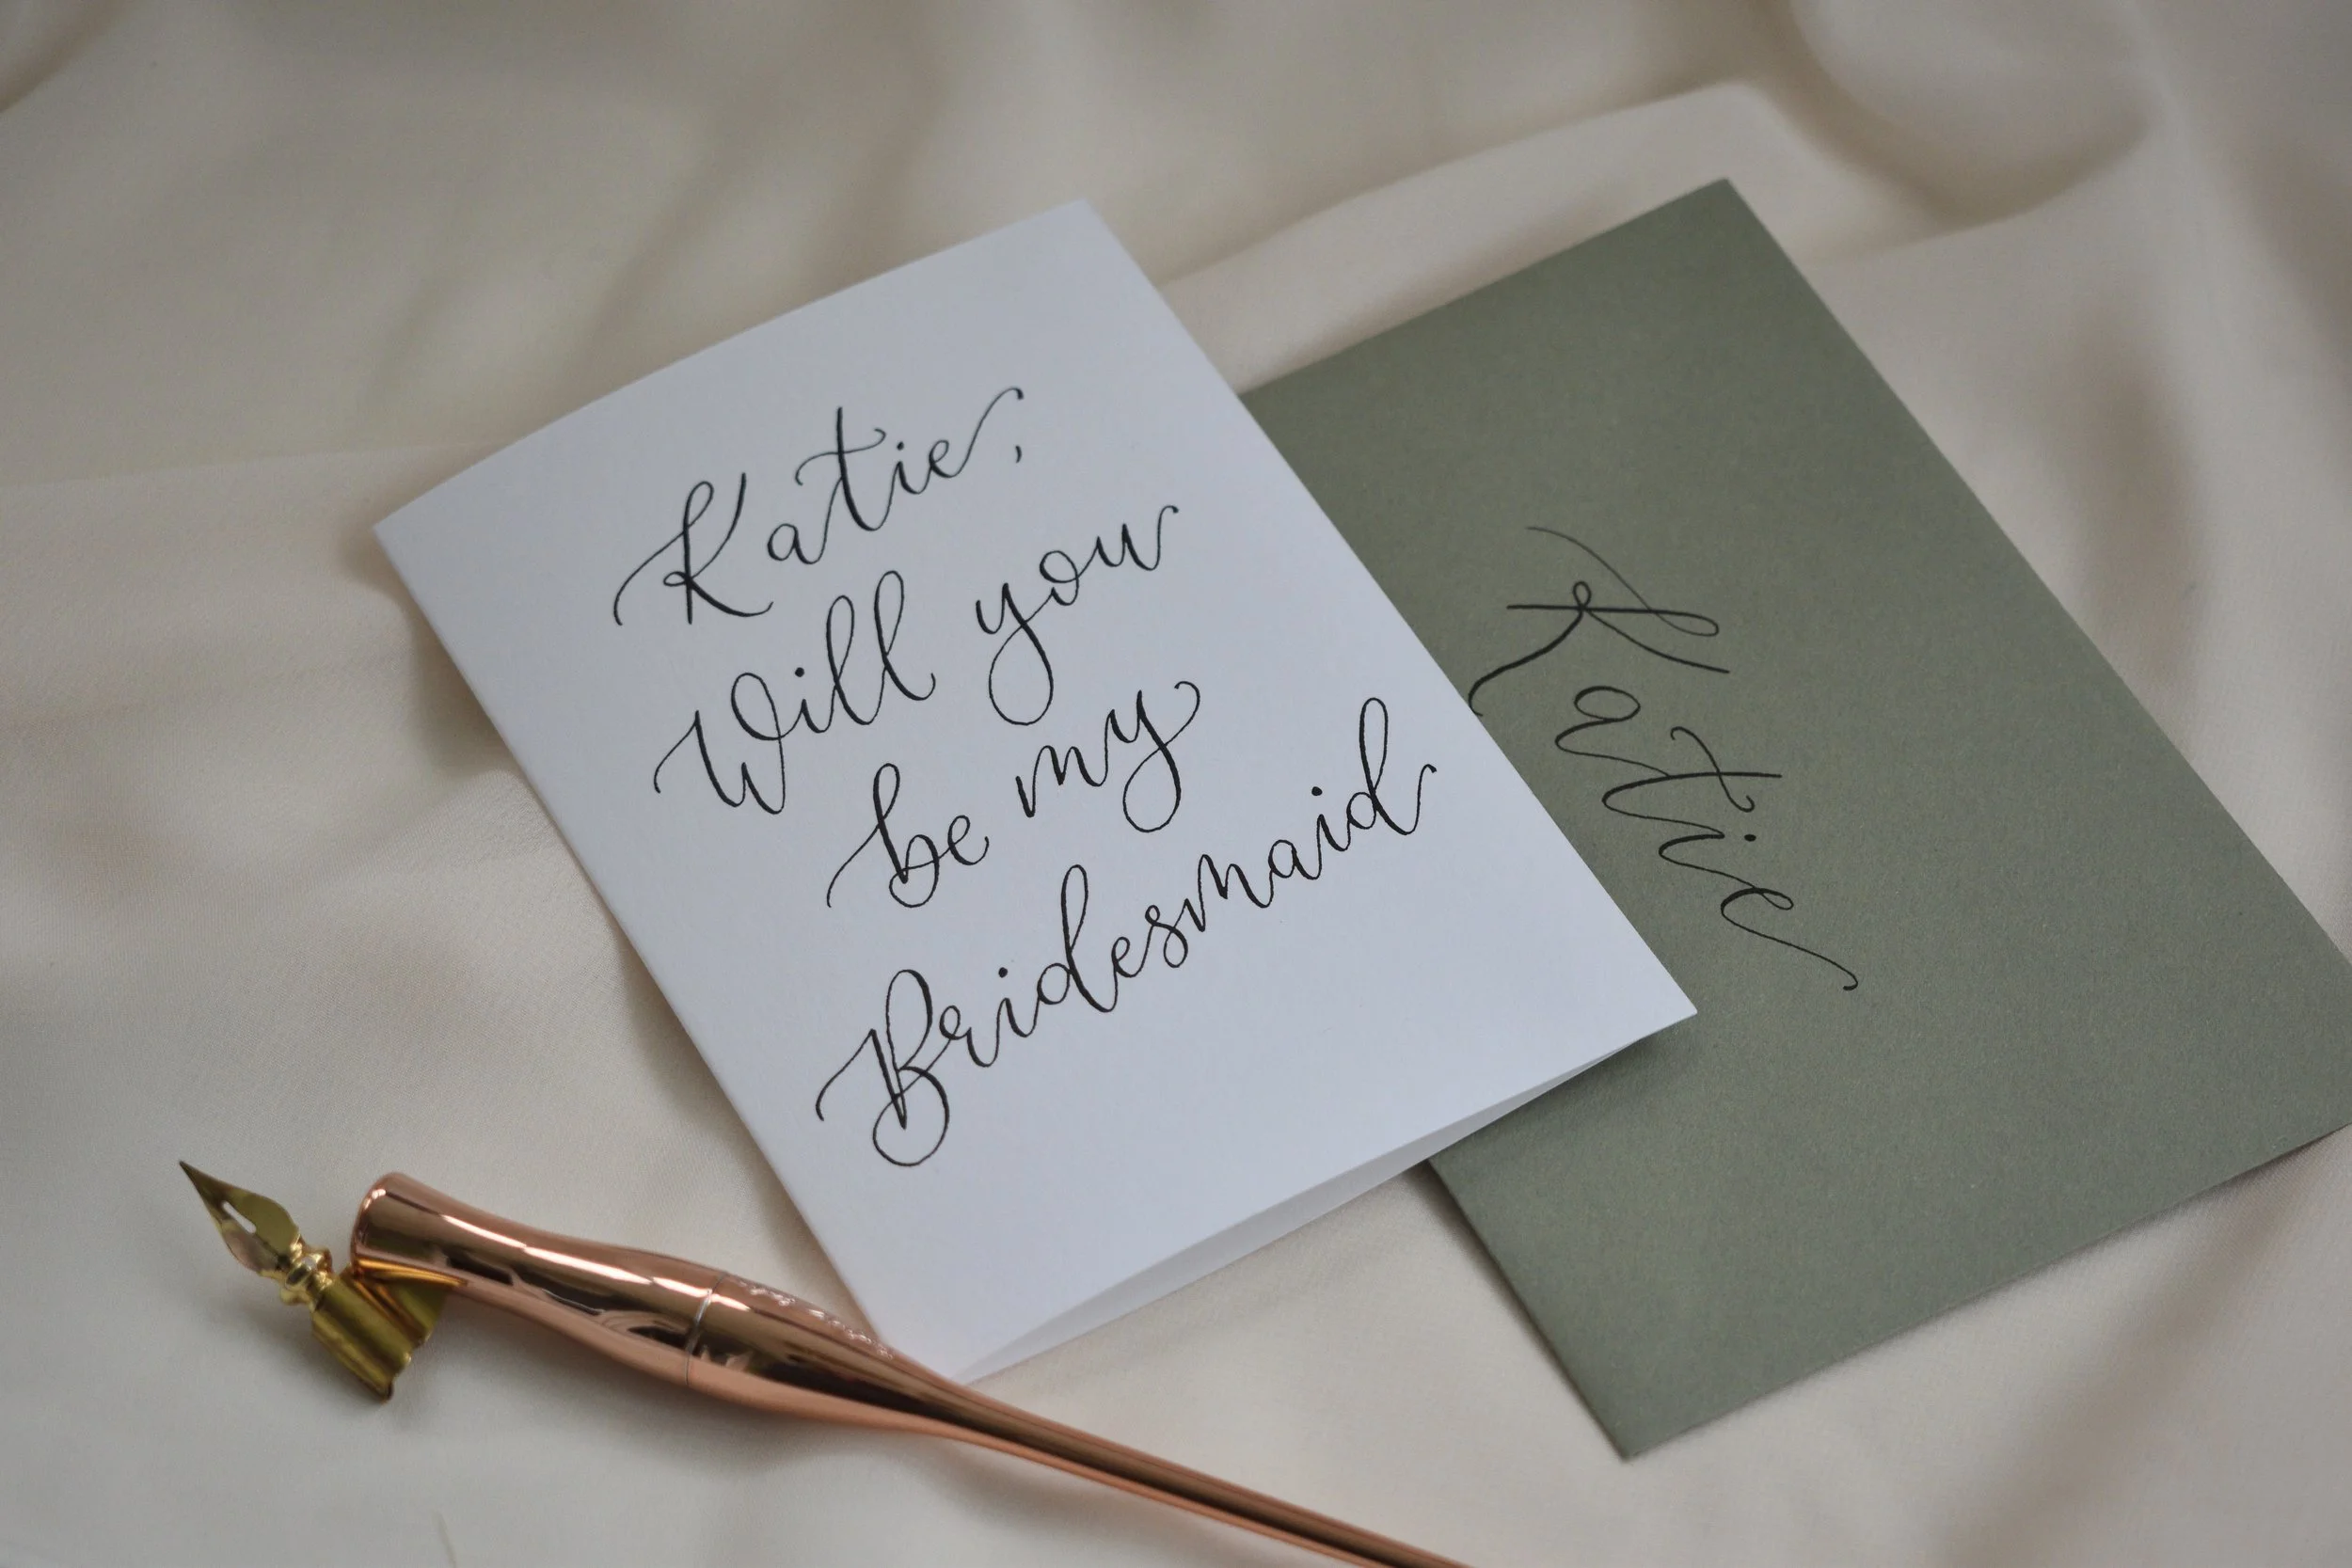 Katie,
Will you
be my
Bridesmaid
Katie